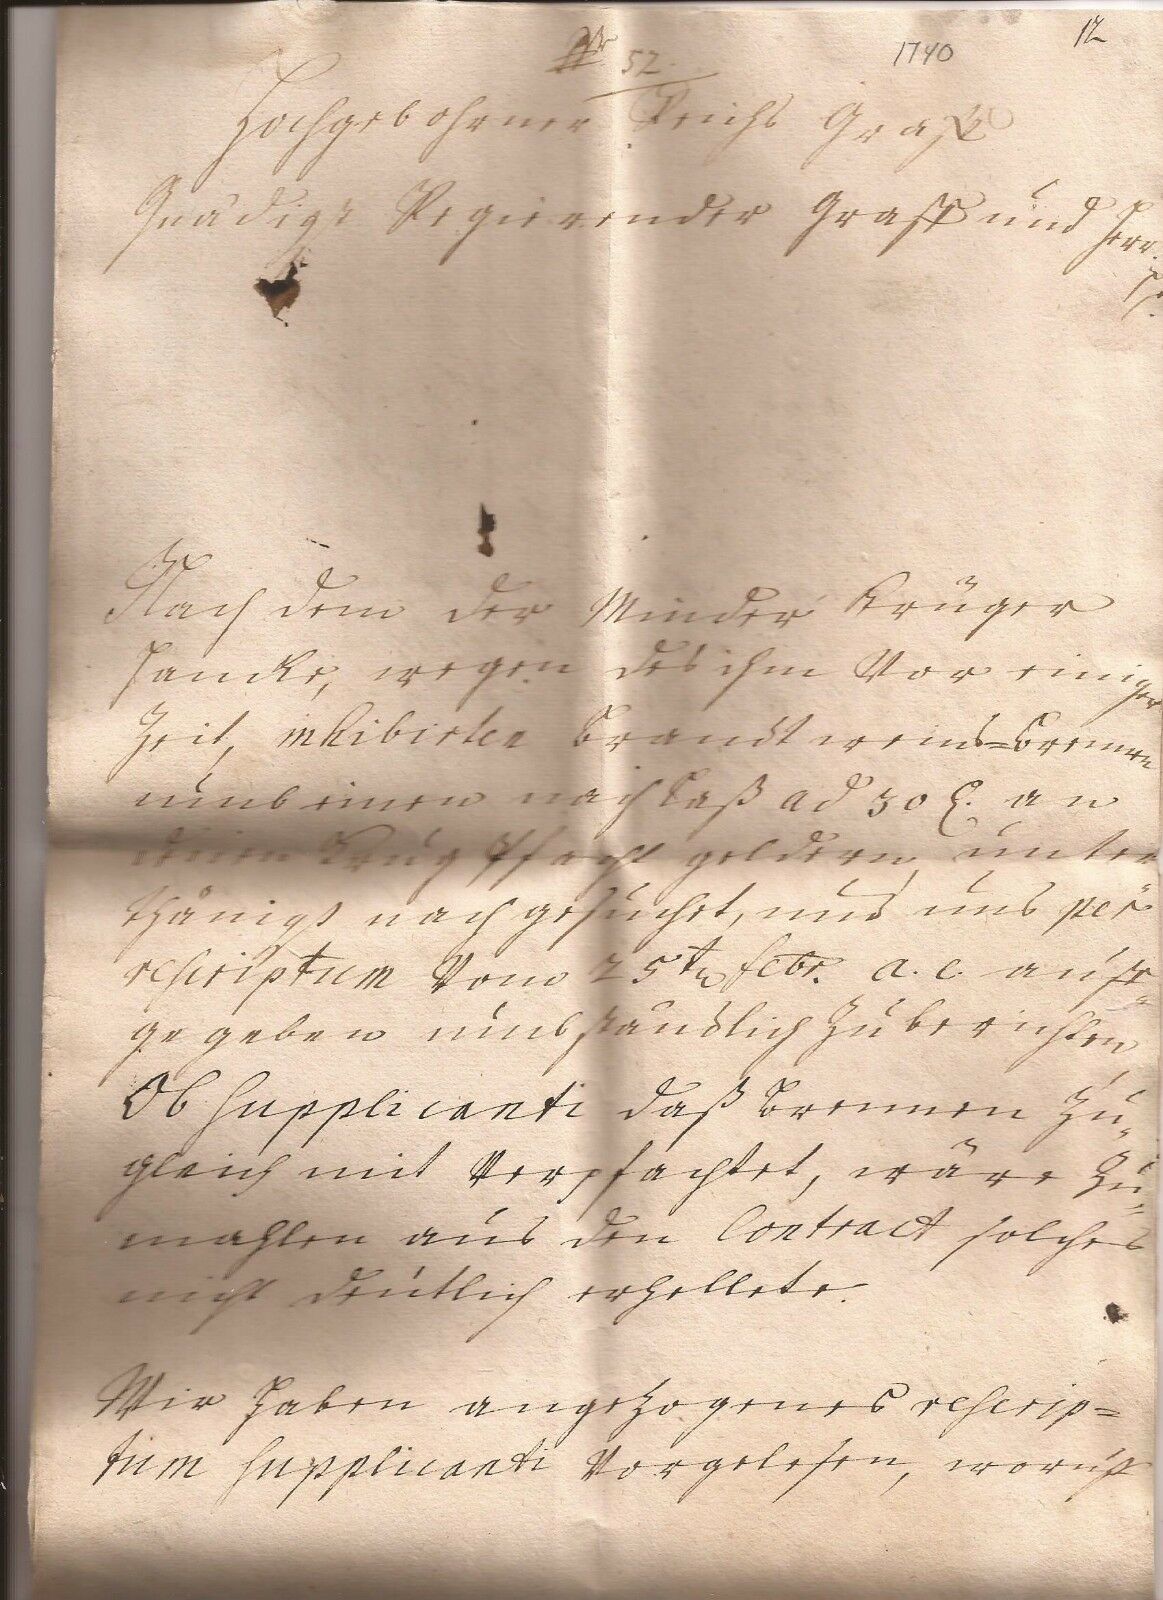 No 52.
1740
12
Hochgebohrner Reichs Graff
Gnädigst Regierender Graff und Herr
Nach dem der Minder Krüger
Jancke, wegen des ihm Vor einiger
Zeit, inhibirten Brandtweins=Brennen
umb einen nachlaß ad 30 an
Krug Pfacht geldern, unter
thänigst nach gesuchet, und uns per
rescriptum Vom 25t febr. a. c. auff=
gegeben umbständlich Zuberichten,
Ob Supplicanti daß Brennen Zu=
gleich mit Verpfachtet, wäre Zu=
mahlen aus den Contract solches
nicht deutlich erhellete.
Wir haben angezogenes rescrip=
tum Supplicanti Vorgelesen, worauf